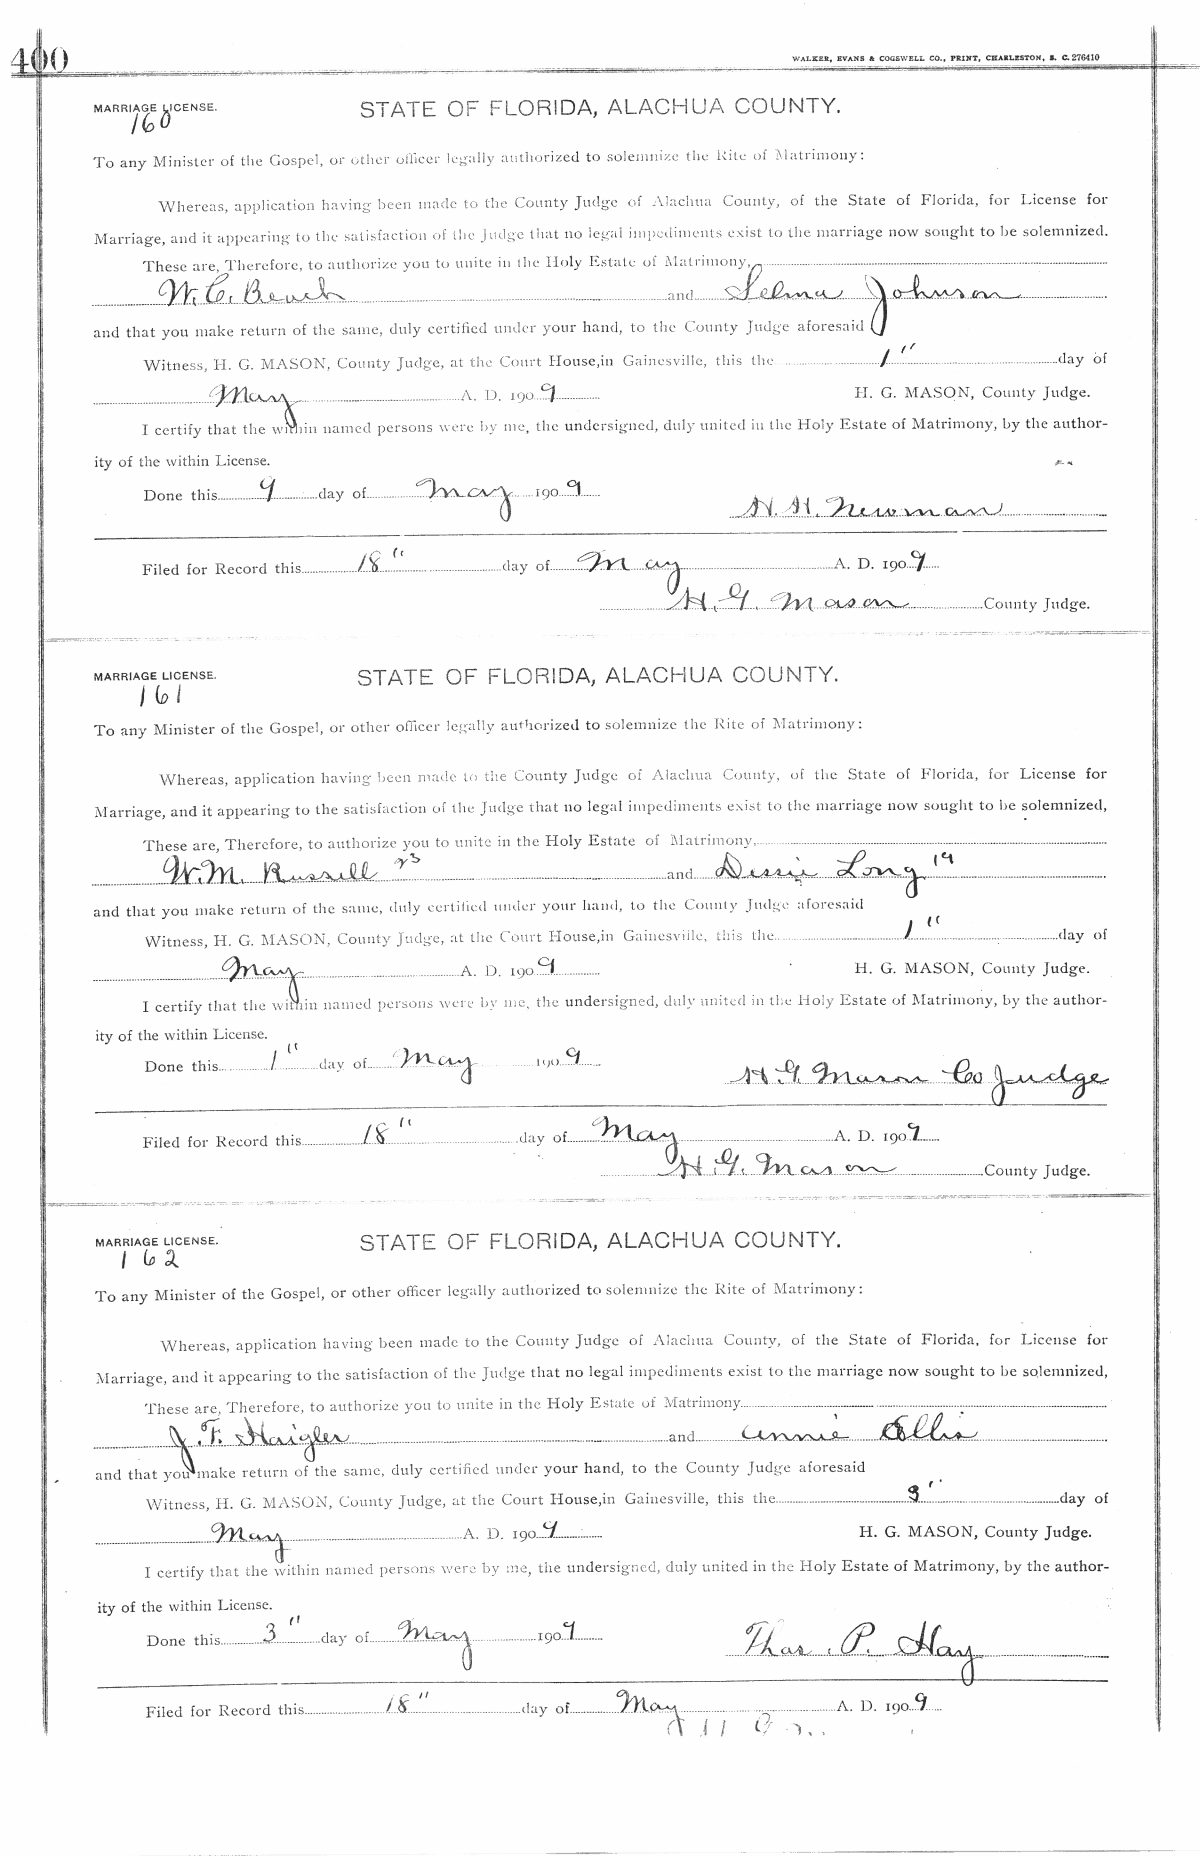 400
WALKER, EVANS & COGSWELL CO., PRINT, CHARLESTON, S. C. 276410
MARRIAGE LICENSE. STATE OF FLORIDA, ALACHUA COUNTY.
160
To any Minister of the Gospel, or other officer legally authorized to solemnize the Rite of Matrimony:
Whereas, application having been made to the County Judge of Alachua County, of the State of Florida, for License for
Marriage, and it appearing to the satisfaction of the Judge that no legal impediments exist to the marriage now sought to be solemnized.
These are, Therefore, to authorize you to unite in the Holy Estate of Matrimony,
W. C. Beach and Selma Johnson
and that you make return of the same, duly certified under your hand, to the County Judge aforesaid
Witness, H. G. MASON, County Judge, at the Court House, in Gainesville, this the 1" day of
May A. D. 1909 H. G. MASON, County Judge.
I certify that the within named persons were by me, the undersigned, duly united in the Holy Estate of Matrimony, by the author-
ity of the within License.
Done this 9 day of May 1909
H. H. Newman
Filed for Record this 18" day of May A. D. 1909
H. G. Mason County Judge.
MARRIAGE LICENSE. STATE OF FLORIDA, ALACHUA COUNTY.
161
To any Minister of the Gospel, or other officer legally authorized to solemnize the Rite of Matrimony:
Whereas, application having been made to the County Judge of Alachua County, of the State of Florida, for License for
Marriage, and it appearing to the satisfaction of the Judge that no legal impediments exist to the marriage now sought to be solemnized,
These are, Therefore, to authorize you to unite in the Holy Estate of Matrimony,
W. M. Russell 23 and Dessie Long 19
and that you make return of the same, duly certified under your hand, to the County Judge aforesaid
Witness, H. G. MASON, County Judge, at the Court House, in Gainesville, this the 1" day of
May A. D. 1909 H. G. MASON, County Judge.
I certify that the within named persons were by me, the undersigned, duly united in the Holy Estate of Matrimony, by the author-
ity of the within License.
Done this 1" day of May 1909
H. G. Mason Co Judge
Filed for Record this 18" day of May A. D. 1909
H. G. Mason County Judge.
MARRIAGE LICENSE. STATE OF FLORIDA, ALACHUA COUNTY.
162
To any Minister of the Gospel, or other officer legally authorized to solemnize the Rite of Matrimony:
Whereas, application having been made to the County Judge of Alachua County, of the State of Florida, for License for
Marriage, and it appearing to the satisfaction of the Judge that no legal impediments exist to the marriage now sought to be solemnized,
These are, Therefore, to authorize you to unite in the Holy Estate of Matrimony
J. F. Haigler and Annie Ellis
and that you make return of the same, duly certified under your hand, to the County Judge aforesaid
Witness, H. G. MASON, County Judge, at the Court House, in Gainesville, this the 3" day of
May A. D. 1909 H. G. MASON, County Judge.
I certify that the within named persons were by me, the undersigned, duly united in the Holy Estate of Matrimony, by the author-
ity of the within License.
Done this 3" day of May 1909
Thos. P. Hay
Filed for Record this 18" day of May A. D. 1909